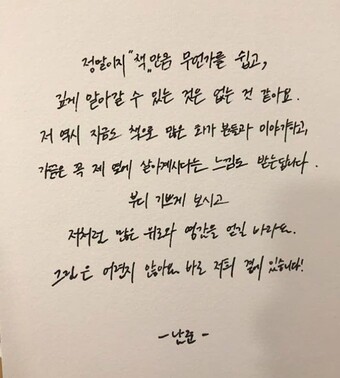 정말이지 "책"만큼 무언가를 쉽고,
깊게 알아갈 수 있는 것은 없는 것 같아요.
저 역시 지금도 책으로 많은 화가 분들과 이야기하고,
가끔은 꼭 제 옆에 살아계시다는 느낌도 받는답니다.
부디 기쁘게 보시고
저처럼 많은 위로와 영감을 얻길 바라요.
그림은 어렵지 않아요. 바로 저희 곁에 있습니다!